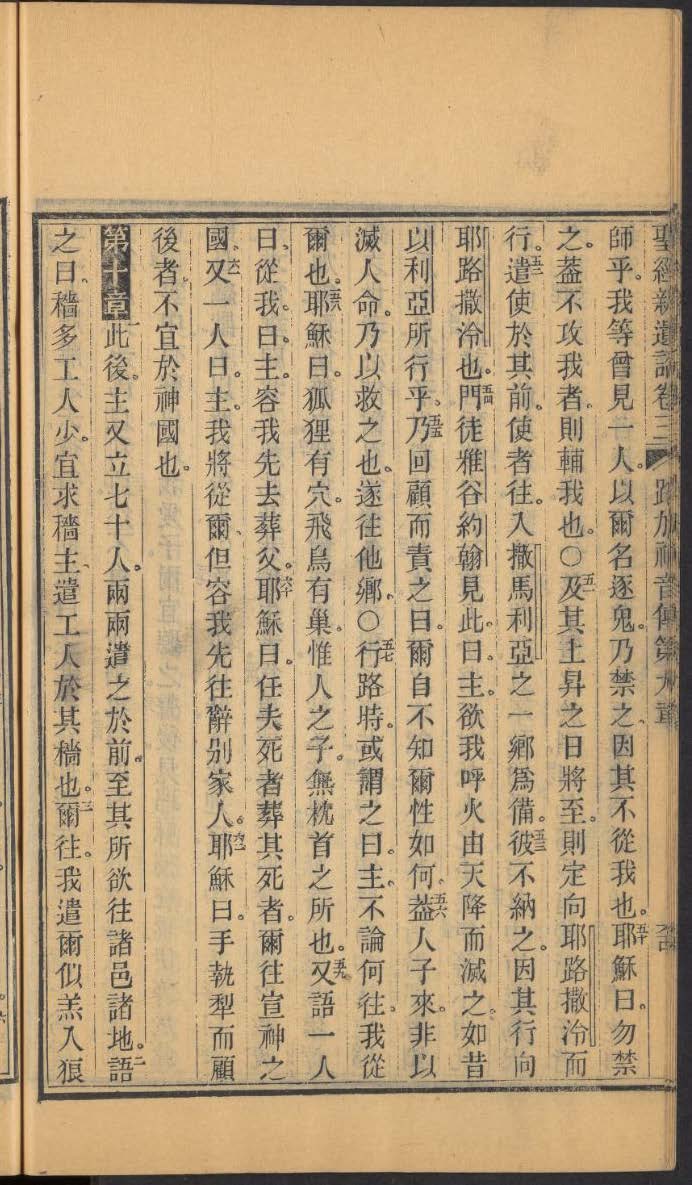 聖經新遺詔卷三 路加福音傳第九章
師乎。我等曾見一人。以爾名逐鬼。乃禁之、因其不從我也。五十耶穌曰。勿禁
之。蓋不攻我者。則輔我也。〇五一及其上昇之日將至。則定向耶路撒冷而
行。五二遣使於其前。使者往。入撒馬利亞之一鄉爲備。五三彼不納之。因其行向
耶路撒冷也。五四門徒雅谷約翰見此。曰。主。欲我呼火由天降而滅之。如昔
以利亞所行乎、五五乃回顧而責之曰。爾自不知爾性如何。五六蓋人子來。非以
滅人命。乃以救之也。遂往他鄉。〇五七行路時。或謂之曰。主。不論何往。我從
爾也。五八耶穌曰。狐狸有穴。飛鳥有巢。惟人之子。無枕首之所也。五九又語一人
曰。從我。曰。主。容我先去葬父。六十耶穌曰。任夫死者葬其死者。爾往宣神之
國。六一又一人曰。主。我將從爾、但容我先往辭別家人。六二耶穌曰。手執犁而顧
後者。不宜於神國也。
第十章一此後。主又立七十人。兩兩遣之於前。至其所欲往諸邑諸地。二語
之曰。穡多工人少。宜求穡主、遣工人於其穡也。三爾往。我遣爾似羔入狼